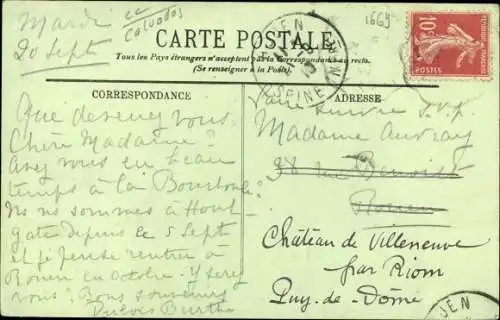 Mardi
20 Sept
Calvados
1669
CARTE POSTALE
Tous les Pays étrangers n'acceptent pas la Correspondance au recto.
(Se renseigner à la Poste).
CORRESPONDANCE
ADRESSE
10c
POSTES
Que devenez vous
Chère Madame?
Avez vous eu beau
temps à la Bourboule?
Nous sommes à Houl
gate depuis le 5 Sept
et je pense rentrer à
Rouen en Octobre. Y serez
vous? Bons souvenirs
Dubois Burthe
faire suivre s.v.p.
Madame Auvray
38 rue Benoist
Rouen
Château de Villeneuve
par Riom
Puy-de-Dôme